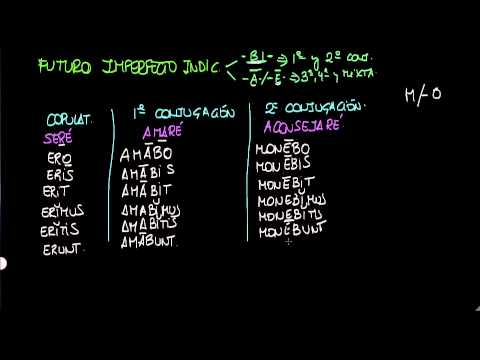 FUTURO IMPERFECTO INDIC. -BI- ⇒ 1ª y 2ª CONJ.
-Ā-/-Ē- ⇒ 3ª, 4ª y MIXTA.
M/-O
COPULAT. 1ª CONJUGACIÓN 2ª CONJUGACIÓN.
SERÉ AMARÉ ACONSEJARÉ
ERO AMĀBO MONĒBO
ERIS AMĀBIS MONĒBIS
ERIT AMĀBIT MONĒBIT
ERĬMUS AMABĬMUS MONEBĬMUS
ERĬTIS AMĀBĬTIS MONEBĬTIS
ERUNT. AMĀBUNT. MONĒBUNT